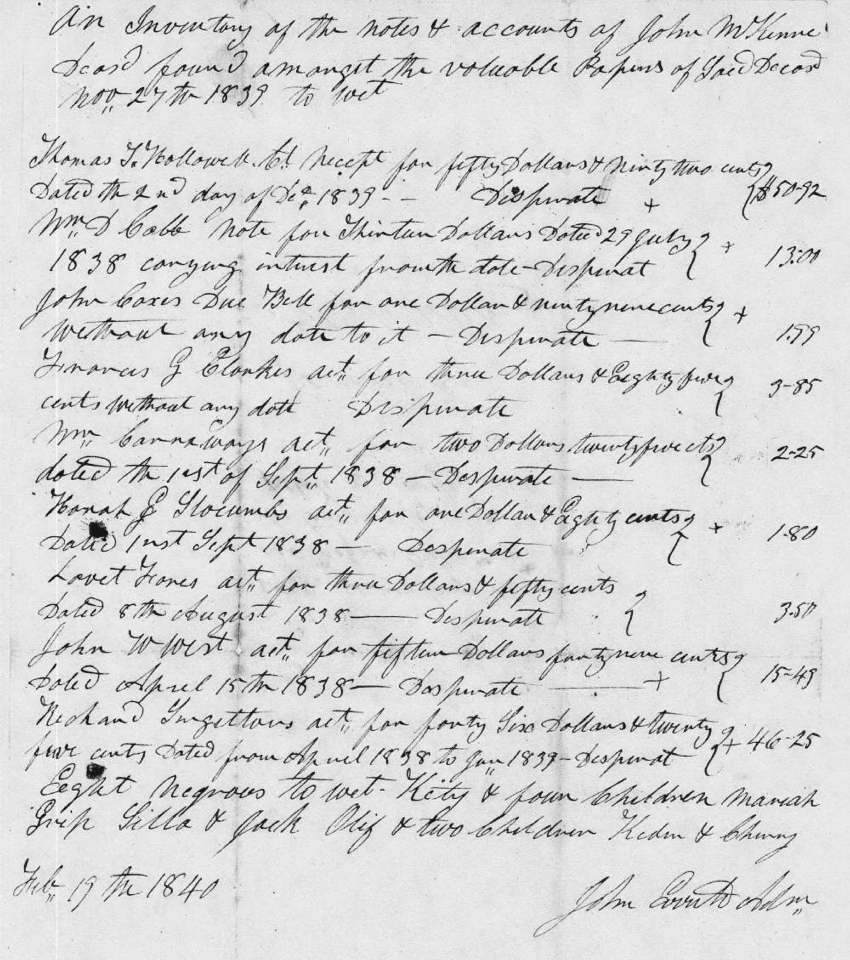 An Inventory of the notes & accounts of John McKinne
Decasd found amongst the valuable Papers of Said Decasd
Nov,, 27th 1839 to wit
Thomas T. Hollowell. Ct. Recept for fifty Dollars & Ninty two cents
Dated th 2nd day of Dec,, 1839 - - Desperate + $50-92
Wm D Cobb Note for Thirteen Dollars Dated 29 July +
1838 carrying intrest from th date - Desperat 13:00
John Coxes Due Bill for one Dollar & ninty nine cents +
without any date to it - Desperate — 1.99
Frances G Clarkes act,, for three Dollars & Eighty five
cents without any date Desperate 3-85
Wm Carraways act,, for two Dollars twenty five cts
dated th 1st of Sept,, 1838 - Desperate — 2-25
Honah G Slocumbs act,, for one Dollar & Eighty cents +
Dated 1st Sept 1838 — Desperate 1.80
Lovet act,, for three Dollars & fifty cents
Dated 8th August 1838 — Desperate 3.50
John W West act,, for fifteen Dollars forty nine cents
Dated April 15th 1838 — Desperate — + 15-49
Richard Singeltons act,, for forty Six Dollars & twenty
five cents Dated from April 1838 to Jan,, 1839 - Desperat + 46-25
Eeght Negroes to wit - Kity & four Children Mariah
Grip Silla & Jack Olif & two Children Kedin & Cherry
Feb,, 19th 1840
John Everitt Adm,,